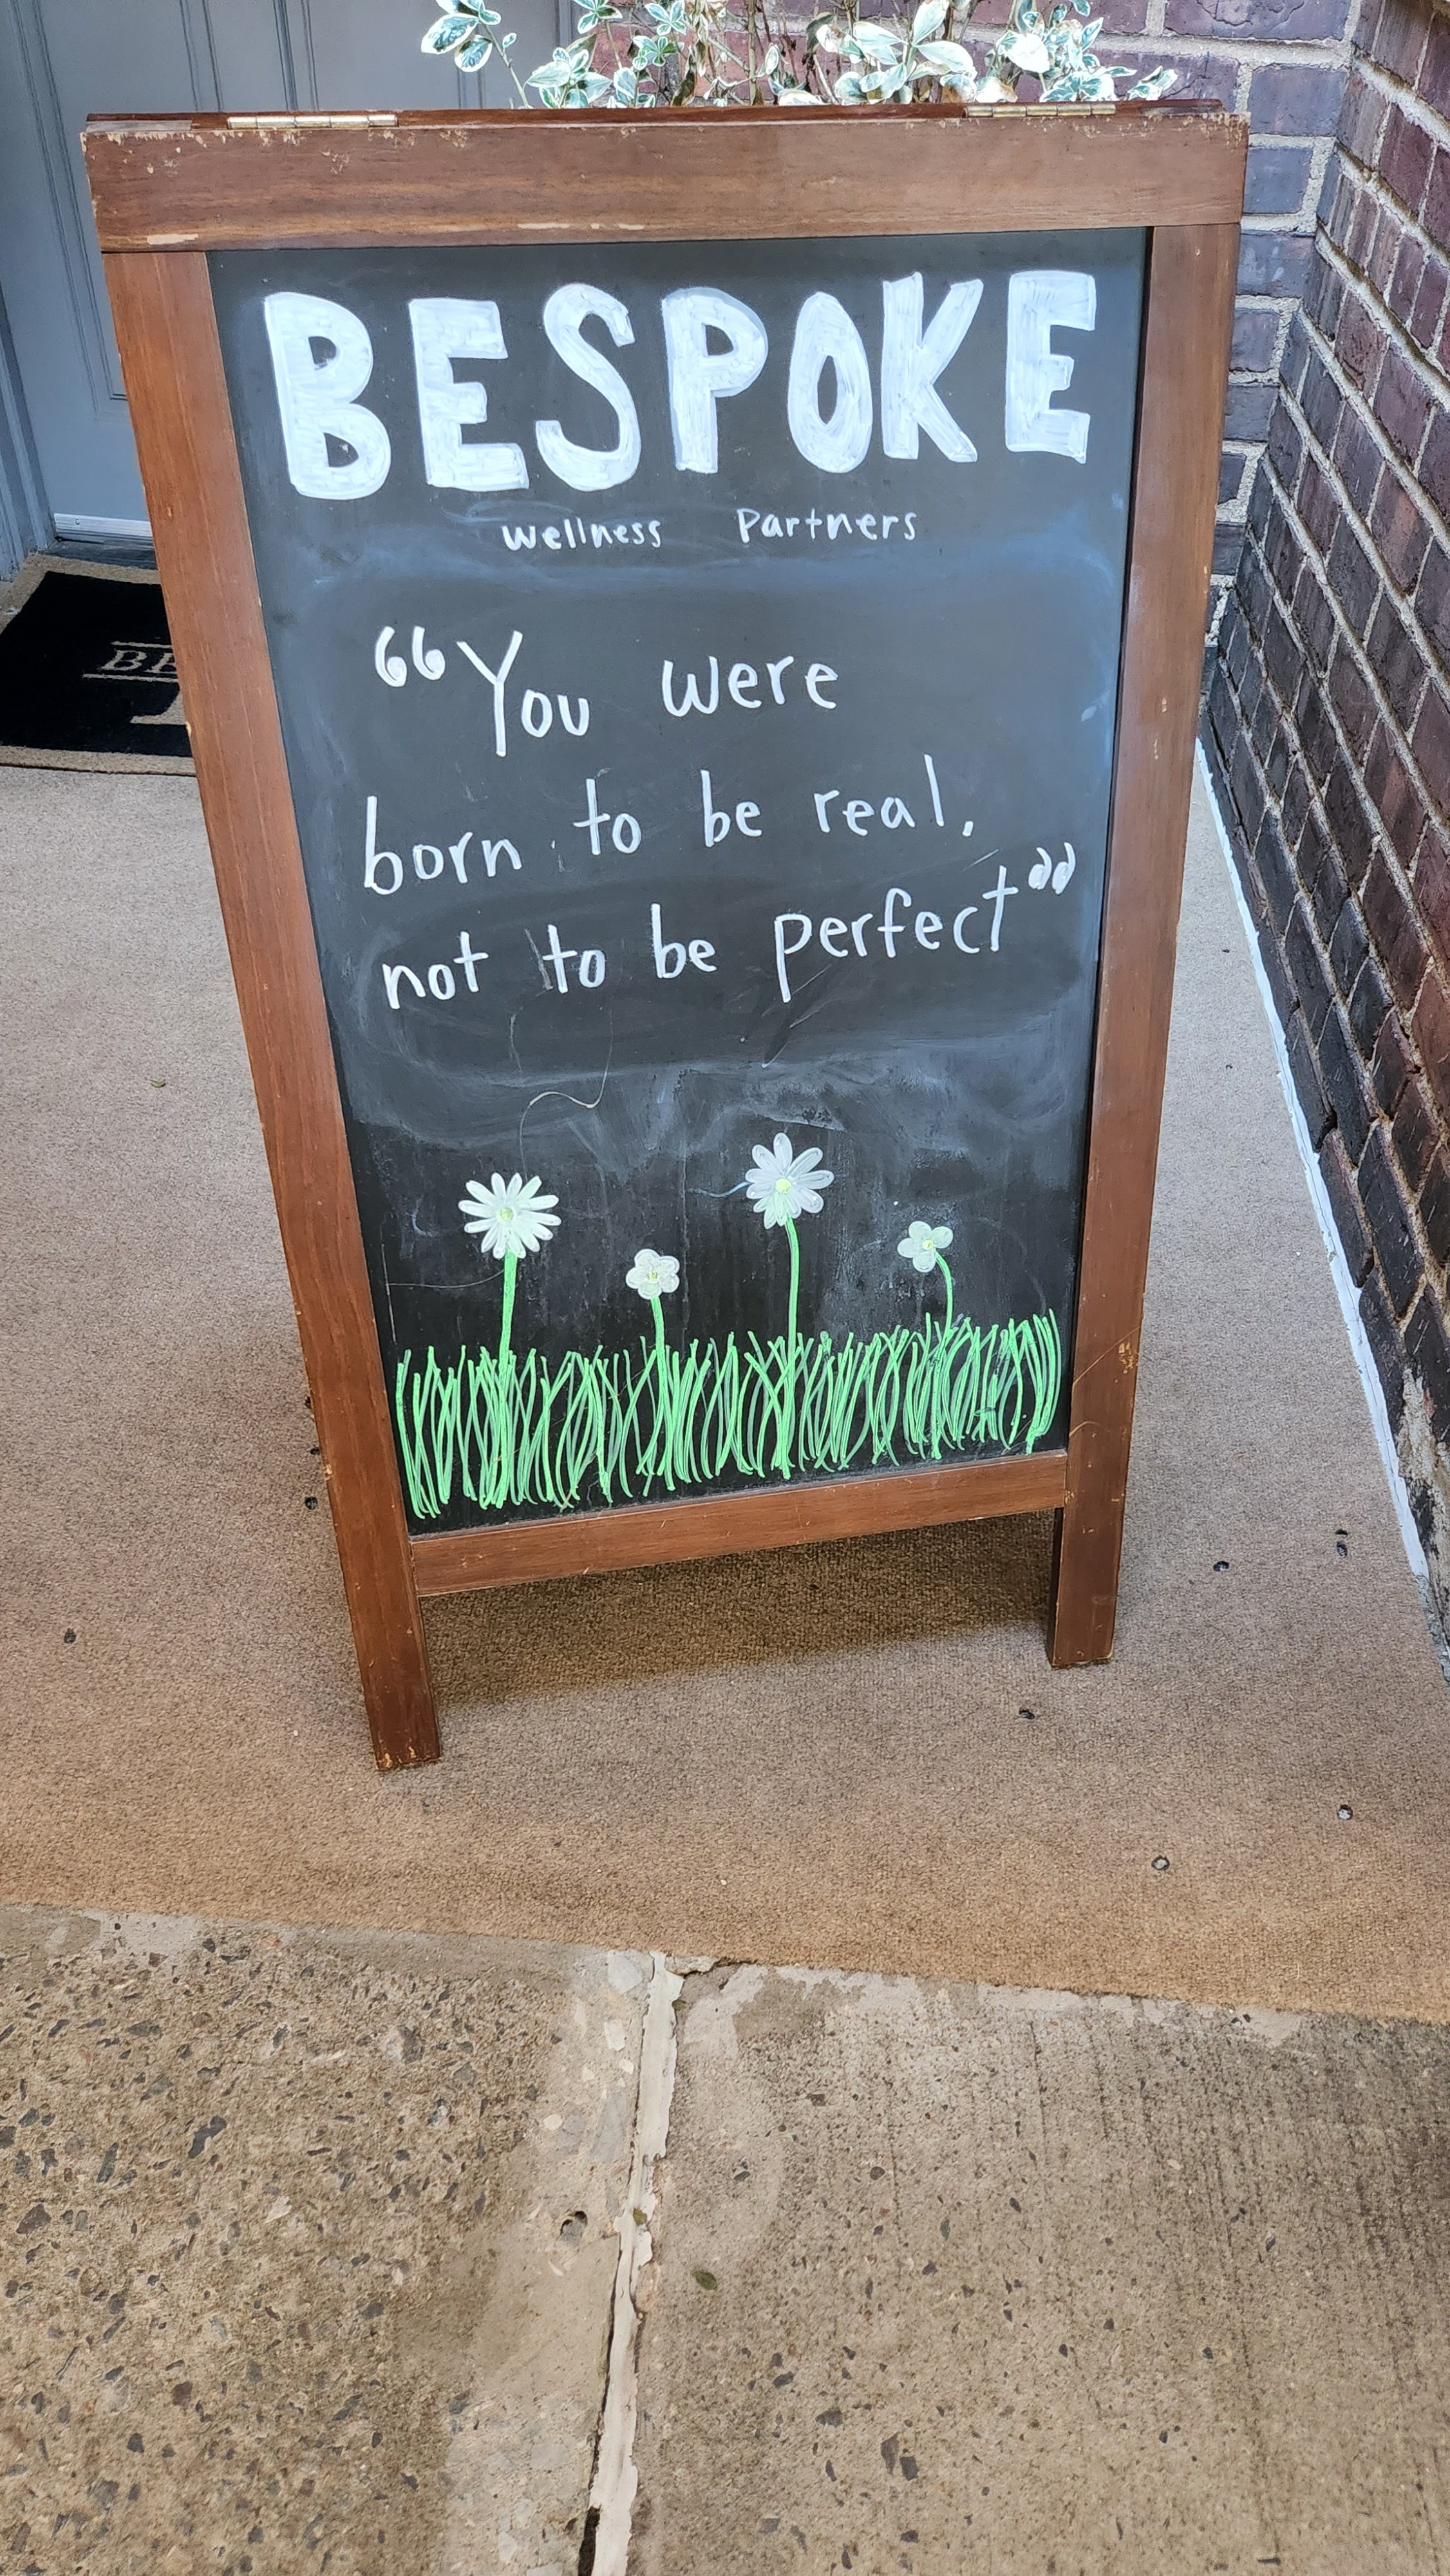 BESPOKE
Wellness Partners
“You were
born to be real,
not to be perfect”